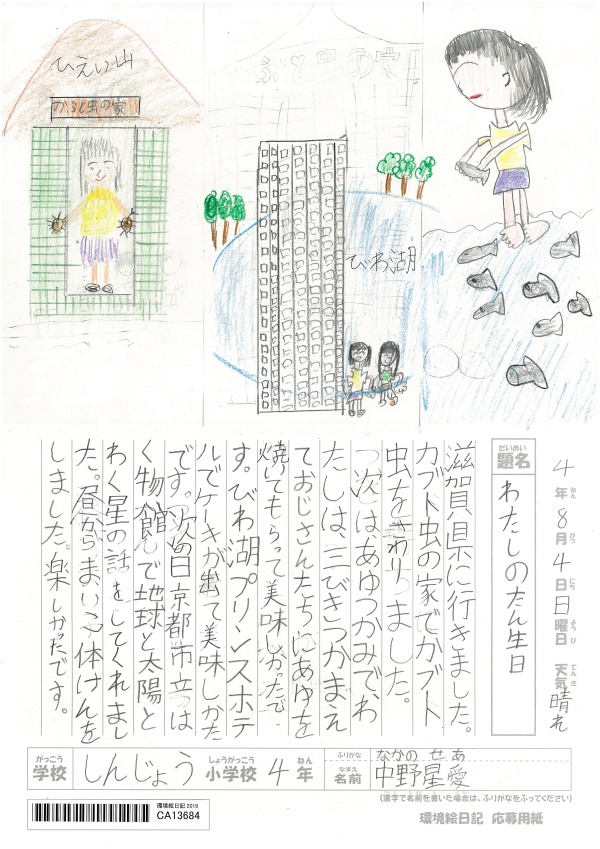 ひえい山
かぶと虫の家
びわ湖
4年8月4日日曜日 天気晴れ
ねん がつ にち ようび てんき
だいめい
題名
わたしのたん生日
滋賀県に行きました。
カブト虫の家でカブト
虫をさわりました。
次はあゆつかみでわ
たしは、三びきつかまえ
ておじさんたちにあゆを
焼いてもらって美味しかったで
す。びわ湖プリンスホテ
ルでケーキが出て美味しかた
です。次の日京都市立っは
く物館で地球と太陽と
わく星の話をしてくれまし
た。昼からまいこ体けんを
しました。楽しかったです。
がっこう しょうがっこう ねん ふりがな なかの せあ
学校 しんじょう 小学校 4年 なまえ 名前 中野星愛
(漢字で名前を書いた場合は、ふりがなをふってください)
環境絵日記 2019
CA13684
環境絵日記 応募用紙